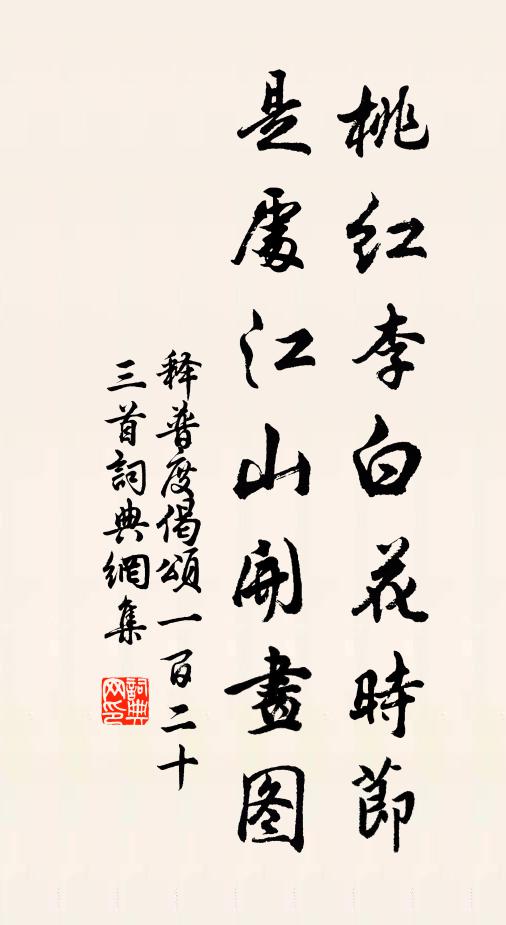 桃红李白花時節
是處江山開畫图
释普度偈頌一百二十
三首詞典網集
詞典
网印